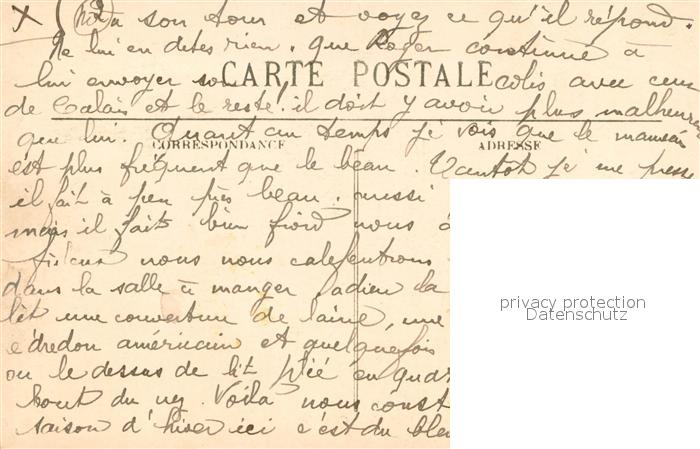 à son tour et voyez ce qu'il répond.
Ne lui en dites rien. que Roger continue à
lui envoyer son colis avec ceux
CARTE POSTALE
de Calais et le reste! il doit y avoir plus malheureux
que lui. Quant au temps je vois que le mauvais
CORRESPONDANCE
ADRESSE
est plus fréquent que le beau. Tantot je me presse
il fait à peu près beau. aussi
mais il fait bien froid nous
nous nous calefeutrons
privacy protection
Datenschutz
dans la salle à manger, adieu la
lit une couverture de laine, une
édredon américain et quelquefois
ou le dessus de lit plié en qua
bout du nez. Voilà nous const
saison d'hiver ici c'est du bleu